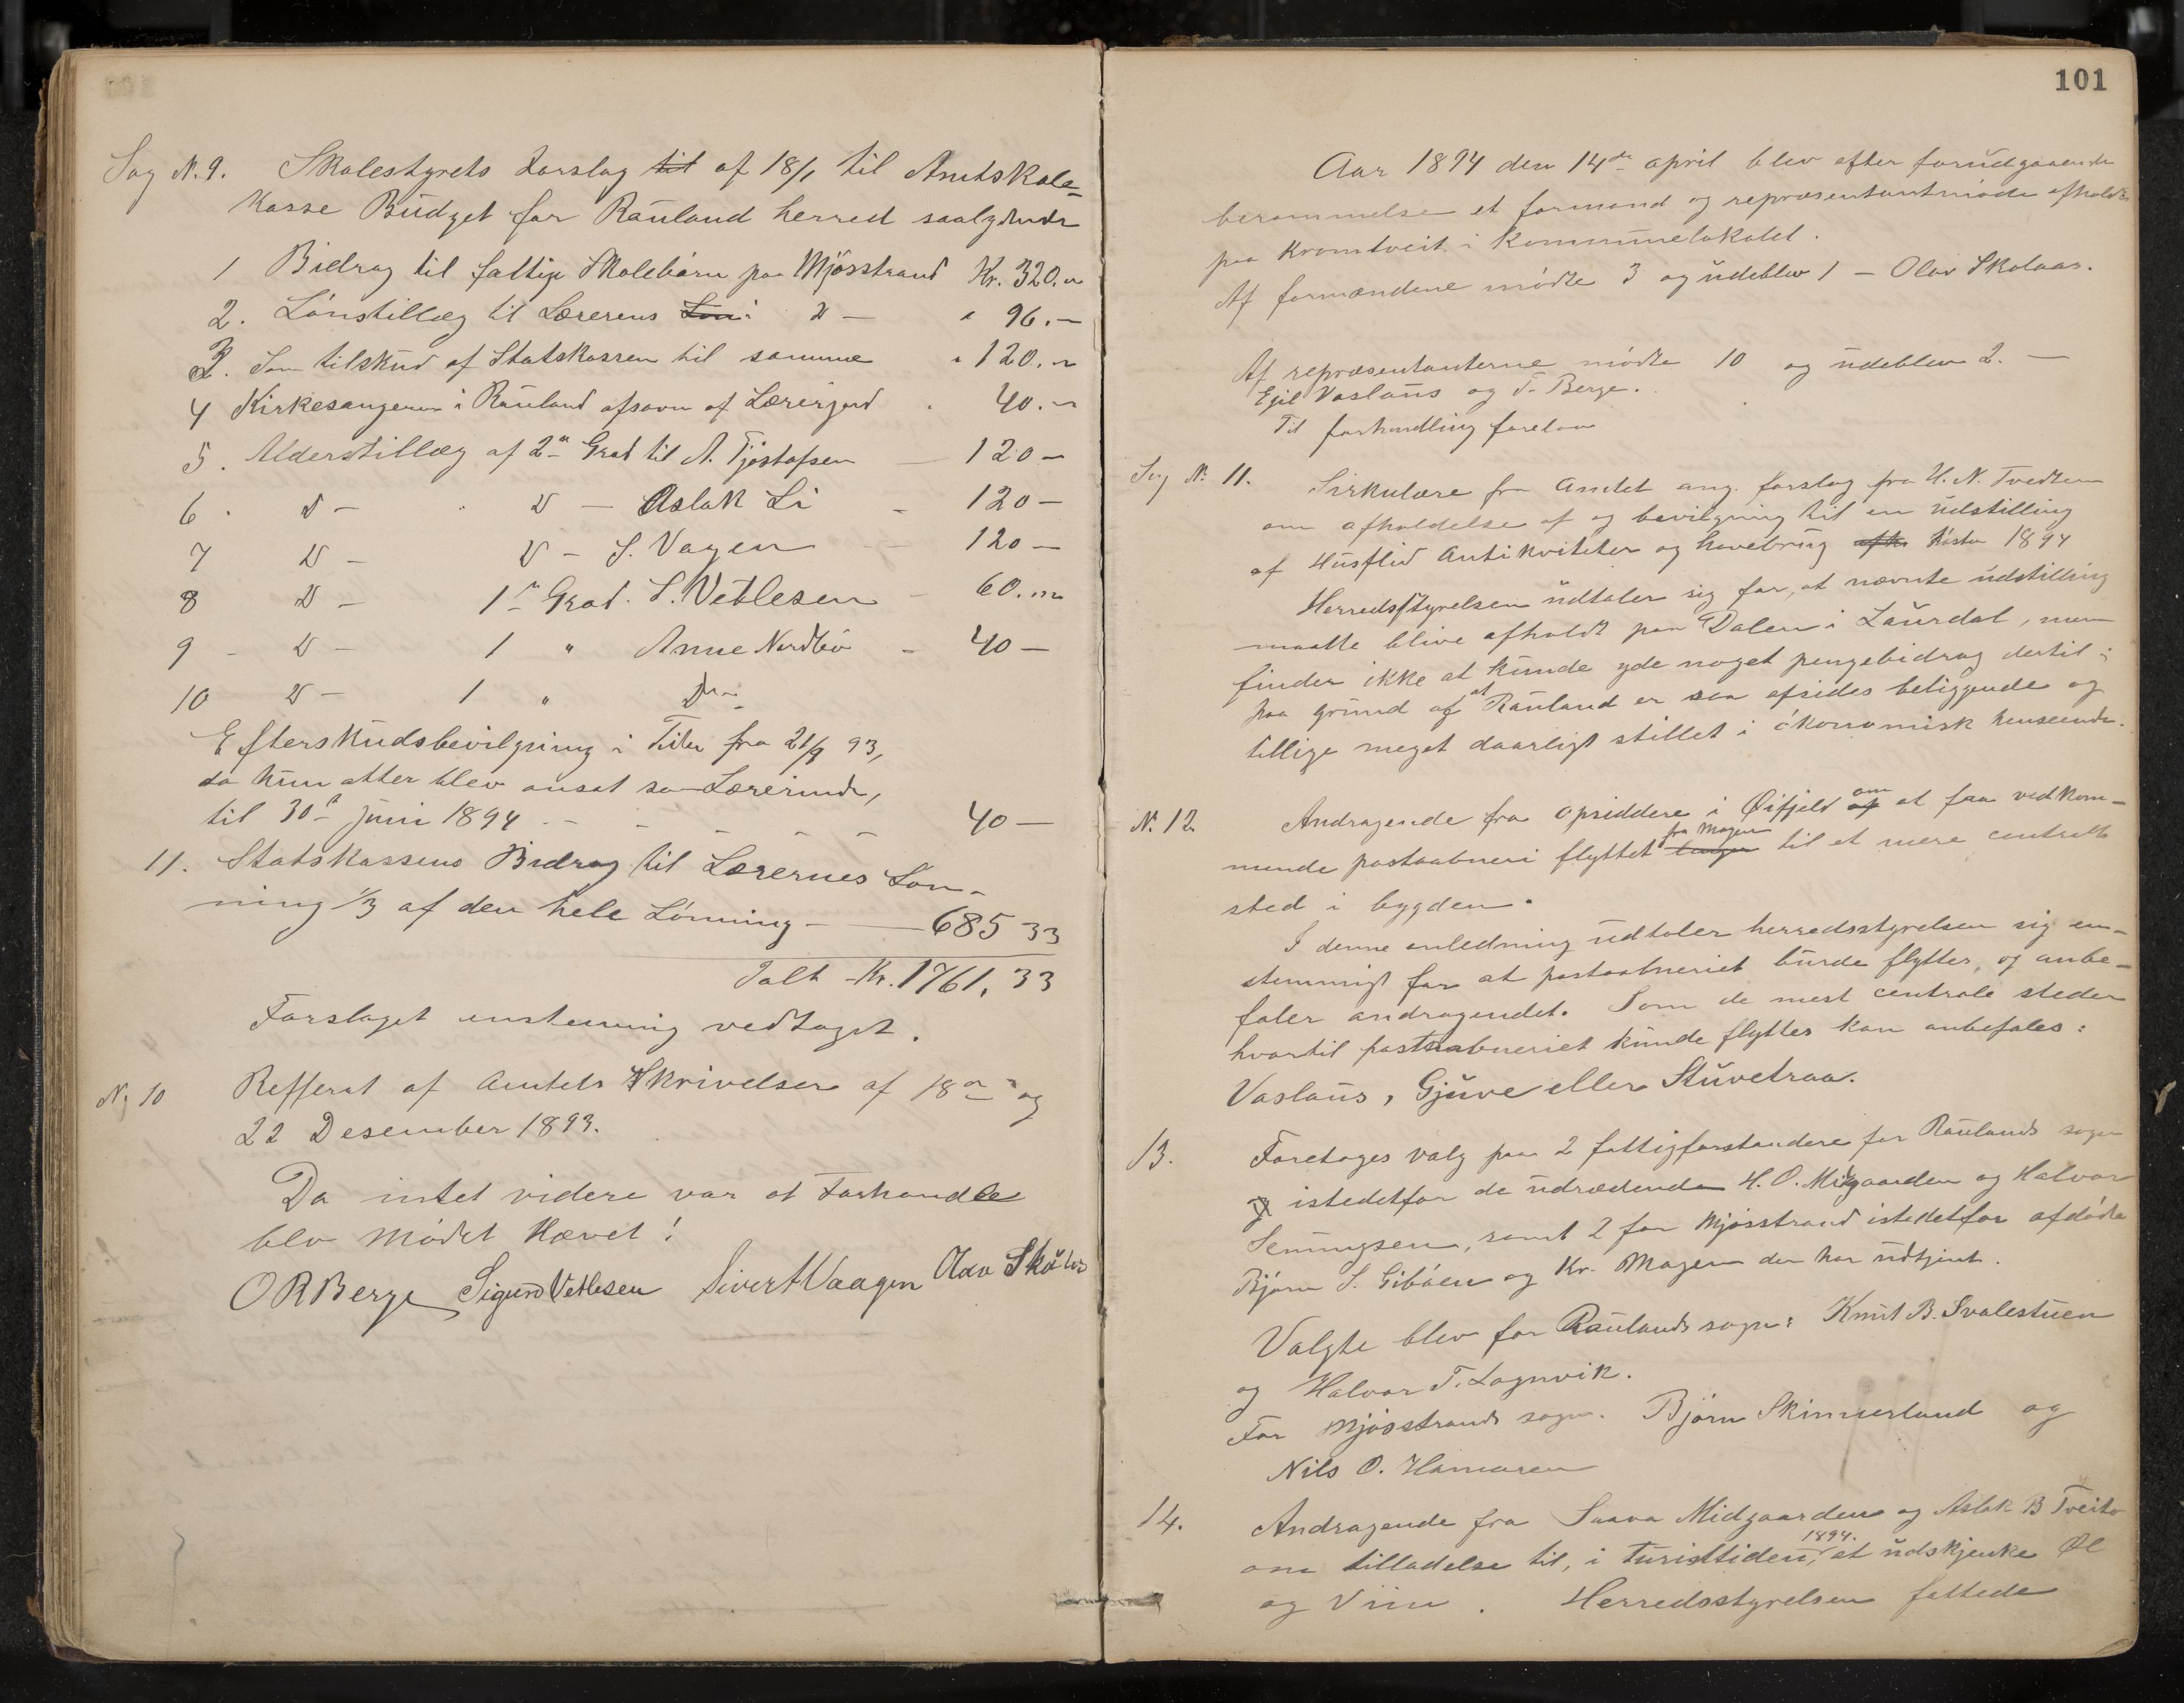 Sag N. 9. Skolestyrets Forslag til af 18/1 til Amtskole-
kasse Budget for Rauland herred saalydende
1 Bidrag til fattige Skolebørn paa Mjösstrand Kr. 320.
2. Lönstillæg til Lærerens Løn i D — " 96.—
3. Som tilskud af Statskassen til samme " 120.
4 Kirkesangeren i Rauland afsavn af Lærerjord 40.
5. Alderstillæg af 2n Grad til A. Tjöstofsen — 120 —
6. D — D — Aslak Li — 120 —
7 D — D — S. Vagen — 120 —
8 D — 1n Grad. S. Vetlesen — 60.
9 — D — 1 " Anne Nordbö — 40 —
10 D — 1 " D
Efterskudsbevilgning i Tiden fra 21/9 93,
da hun atter blev ansat som Lærerinde,
til 30te juni 1894 — — — — — 40 —
11. Statskassens Bidrag til Lærernes Løn-
ning 1/3 af den hele Lönning — 685 33
Ialt Kr. 1761,33
Forslaget enstemmig vedtaget.
N. 10 Refferat af Amtets Skrivelser af 18de og
22 Desember 1893.
Da intet videre var at Forhandle
blev Mödet Hævet!
O R Berge Sigurd Vetlesen Sivert Vaagen Olav
101
Aar 1894 den 14de april blev efter forudgaaende
berammelse et formand og repræsentantmöde afholdt
paa Kromtveit i Kommunelokalet.
Af formændene mödte 3 og udeblev 1 — Olav Skolaas.
Af repræsentanterne mödte 10 og udeblev 2. —
Egil Vaslaus og T. Berge.
Til forhandling forelaa
Sag N. 11. Sirkulære fra Amtet ang. forslag fra H. N. Tvedten
om afholdelse af og bevilgning til en udstilling
af Husflid Antikviteter og havebrug afh. Høsten 1894
Herredsstyrelsen udtaler sig for, at nævnte udstilling
maatte blive afholdt paa Dalen i Laurdal, men
finder ikke at kunde yde noget pengebidrag dertil;
paa grund af at Rauland er saa afsides beliggende og
tillige meget daarligt stillet i ökonomisk henseende.
N. 12 Andragende fra opsiddere i Øifjeld af om at faa vedkom-
mende postaabneri flyttet fra Mogen til et mere centralt
sted i bygden.
I denne anledning udtaler herredsstyrelsen sig en-
stemmigt for at postaabneriet burde flyttes, og anbe-
faler andragendet. Som de mest centrale steder
hvortil postaabneriet kunde flyttes kan anbefales:
Vaslaus, Gjuve eller Stuvetraa.
13. Foretages valg paa 2 fattigforstandere for Raulands sogn
og istedetfor de udtrædende H. O. Migaarden og Halvor
Seningsen, samt 2 for Mjösstrand istedetfor afdöde
Björn S. Giböen og Kr. Mogen der har udtjent.
Valgte blev for Raulands sogn: Knut B. Svalestuen
og Halvor T. Lognvik.
For Mjösstrands sogn. Björn Skinnerland og
Nils O. Hamaren
14. Andragende fra Saava Midgaarden og Aslak B Tveito
om tilladelse til, i turisttiden 1894, at udskjenke Øl
og Viin. Herredsstyrelsen fattede